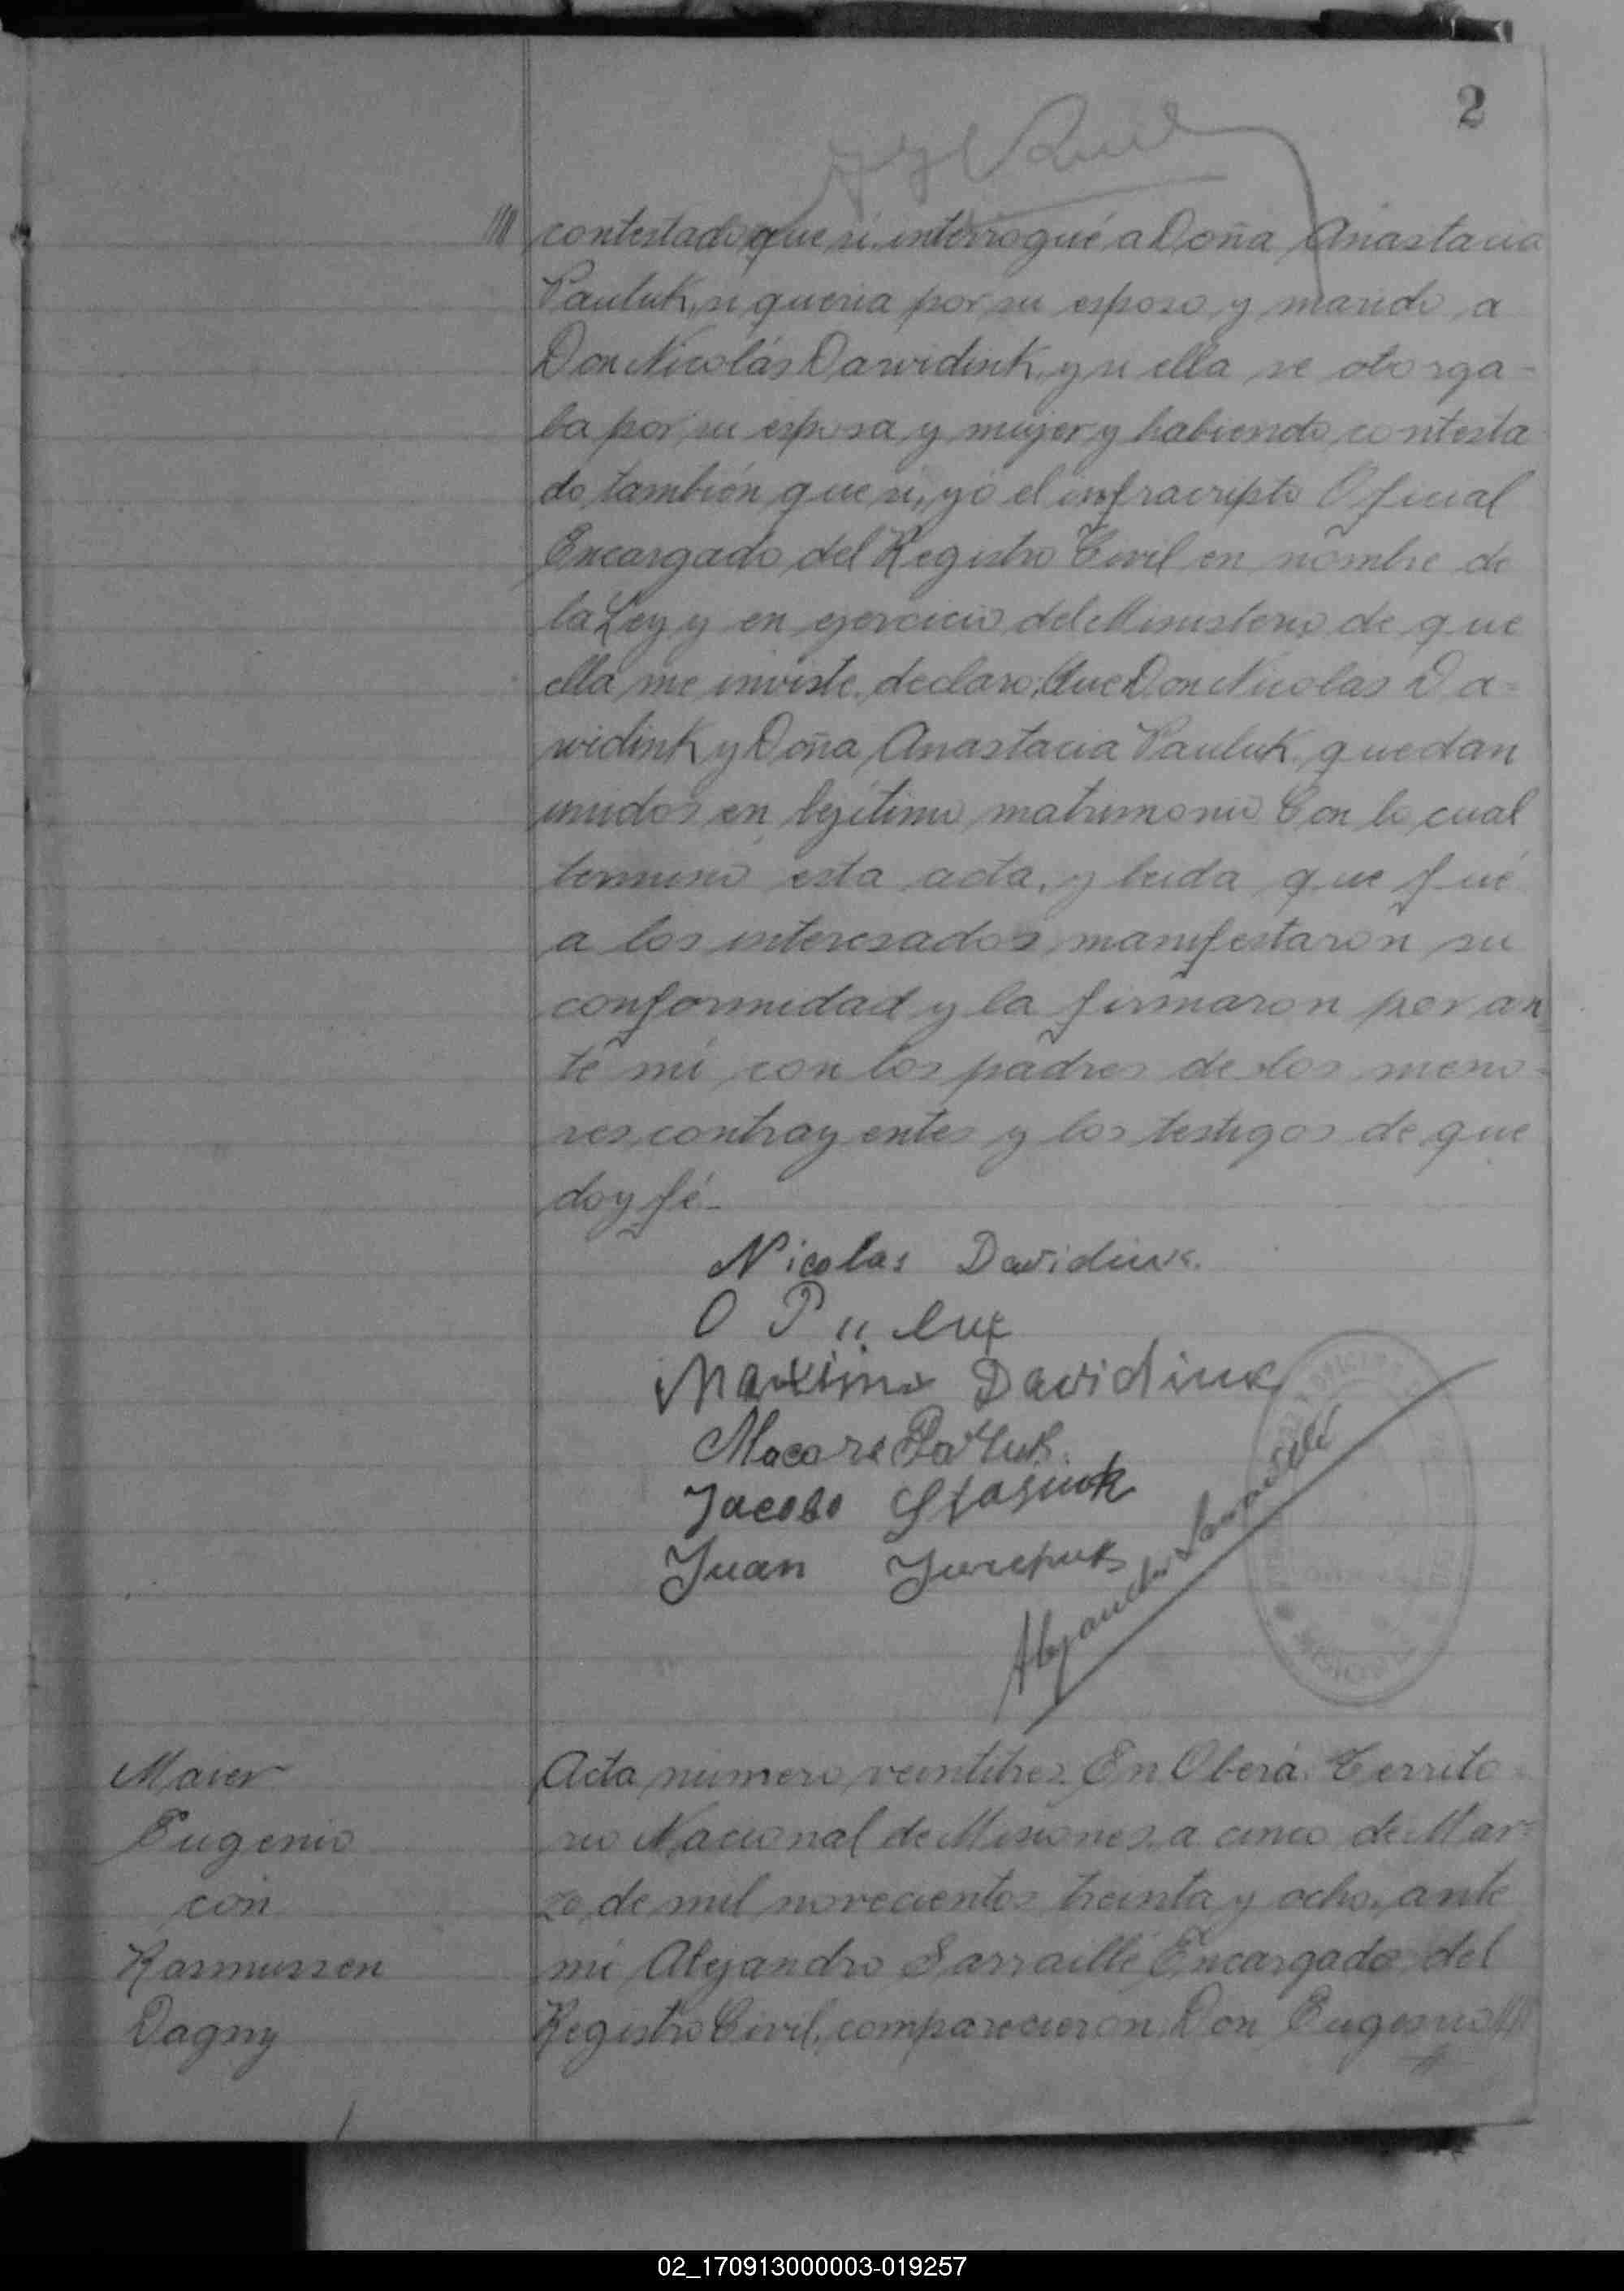 2
contestado que si, interrogué a Doña Anastacia
Pauluk, si queria por su esposo y marido a
Don Nicolás Dawidink, y si ella se otorga-
ba por su esposa y mujer y habiendo contesta
do también que si, yó el infrascripto Oficial
Encargado del Registro Civil en nombre de
la Ley y en ejercicio del Ministerio de que
ella me inviste, declaro: Que Don Nicolás Da=
widink y Doña Anastacia Pauluk, quedan
unidos en legítimo matrimonio. Con lo cual
terminó esta acta, y leida que fué
a los interesados manifestaron su
conformidad y la firmaron por an
te mi con los padres de los meno=
res contrayentes y los testigos de que
doy fé-
Nicolas Davidiuk.
O
Maxime Davidiuk
Jacobo Stasiuk
Juan
Alejandro Sarraillé
MISIONES
Maier
Eugenio
con
Rasmussen
Dagny
Acta número veintitres. En Oberá. Territo=
rio Nacional de Misiones, a cinco de Mar=
zo de mil novecientos treinta y ocho, ante
mi Alejandro Sarraillé Encargado del
Registro Civil, comparecieron: Don Eugenio
02_170913000003-019257